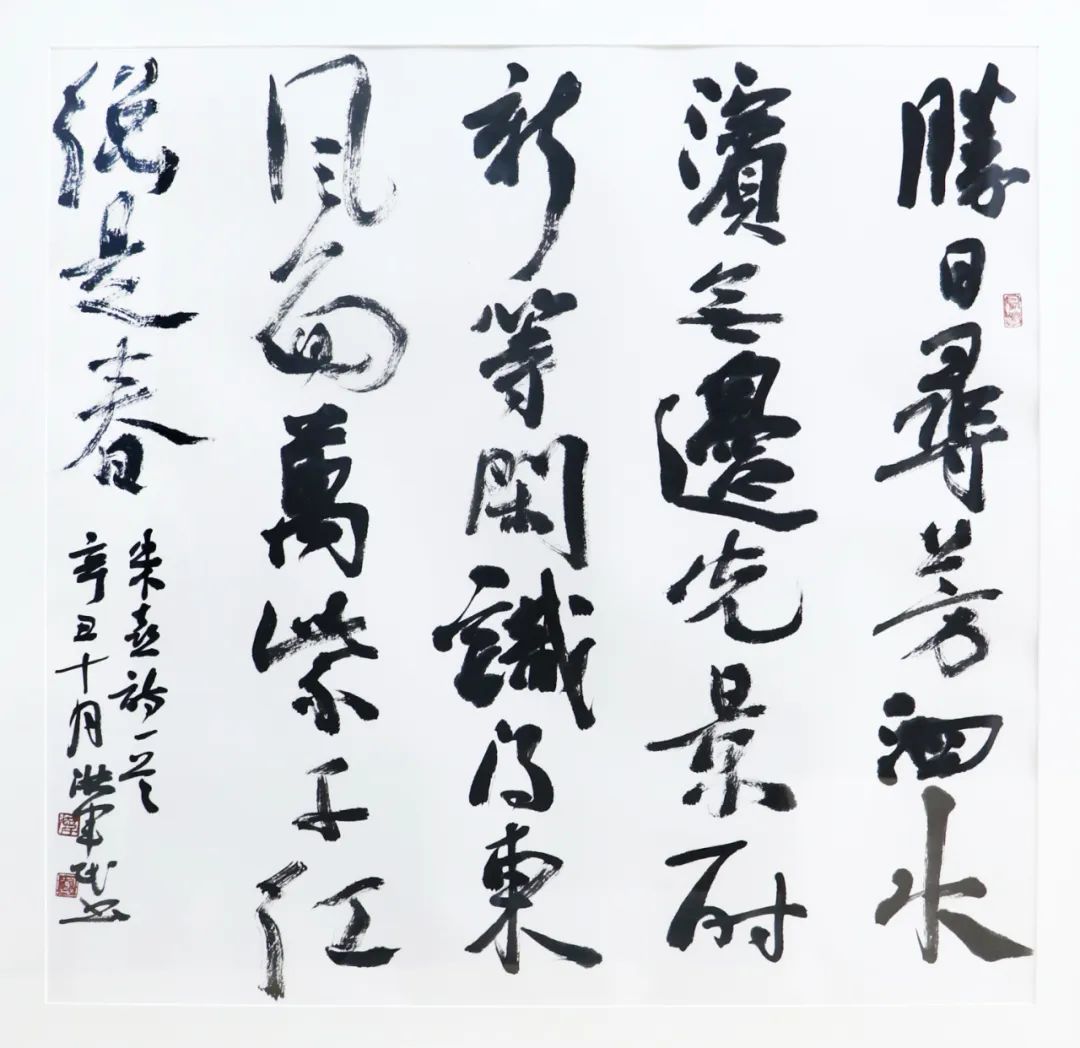 勝日尋芳泗水
濱無邊光景一时
新等閑識得東
風面萬紫千紅
總是春
朱熹詩一首
辛丑十月洪軍书